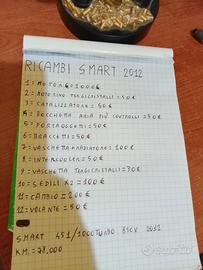 RICAMBI SMART 2012
1 = MOTORE = 1000€
2 = MOTORINO TERGICRISTALLI = 50€
3 = CATALIZZATORE = 60€
4 = BOCCHETTA ARIA PIÙ CONTROLLI = 50€
5 = PORTAOGGETTI = 50€
6 = BRACCETTI = 50€
7 = VASCHETTA + RADIATORE = 100€
8 = INTERCOOLER = 50€
9 = VASCHETTA TERGICRISTALLI = 30€
10 = SEDILI X2 = 100€
11 = CAMBIO = 200€
12 = VOLANTE = 50€
SMART 451/1000 TURBO 84CV 2012
KM = 78.000
subito